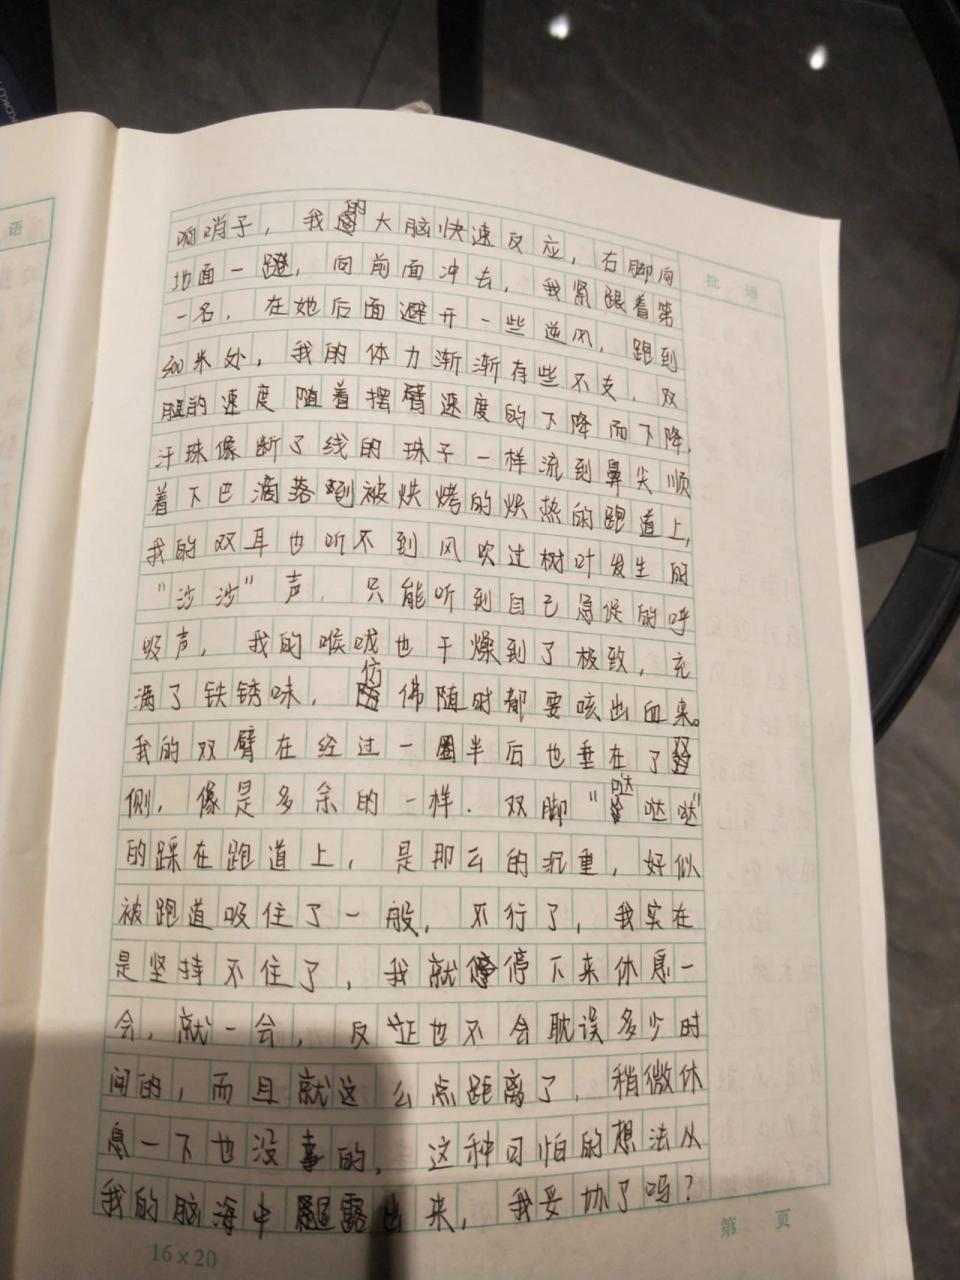 语
批 语
响哨子，我的大脑快速反应，右脚向
地面一蹬，向前面冲去，我紧跟着第
一名，在她后面避开一些逆风，跑到
500米处，我的体力渐渐有些不支，双
腿的速度随着摆臂速度的下降而下降，
汗珠像断了线的珠子一样流到鼻尖顺
着下巴滴落到被烘烤的炽热的跑道上，
我的双耳也听不到风吹过树叶发生的
“沙沙”声，只能听到自己急促的呼
吸声，我的喉咙也干燥到了极致，充
满了铁锈味，仿佛随时都要咳出血来。
我的双臂在经过一圈半后也垂在了双
侧，像是多余的一样．双脚“哒哒哒”
的踩在跑道上，是那么的沉重，好似
被跑道吸住了一般，不行了，我实在
是坚持不住了，我就停下来休息一
会，就一会，反正也不会耽误多少时
间的，而且就这么点距离了，稍微休
息一下也没事的，这种可怕的想法从
我的脑海中露出来，我妥协了吗？
16×20
第 页